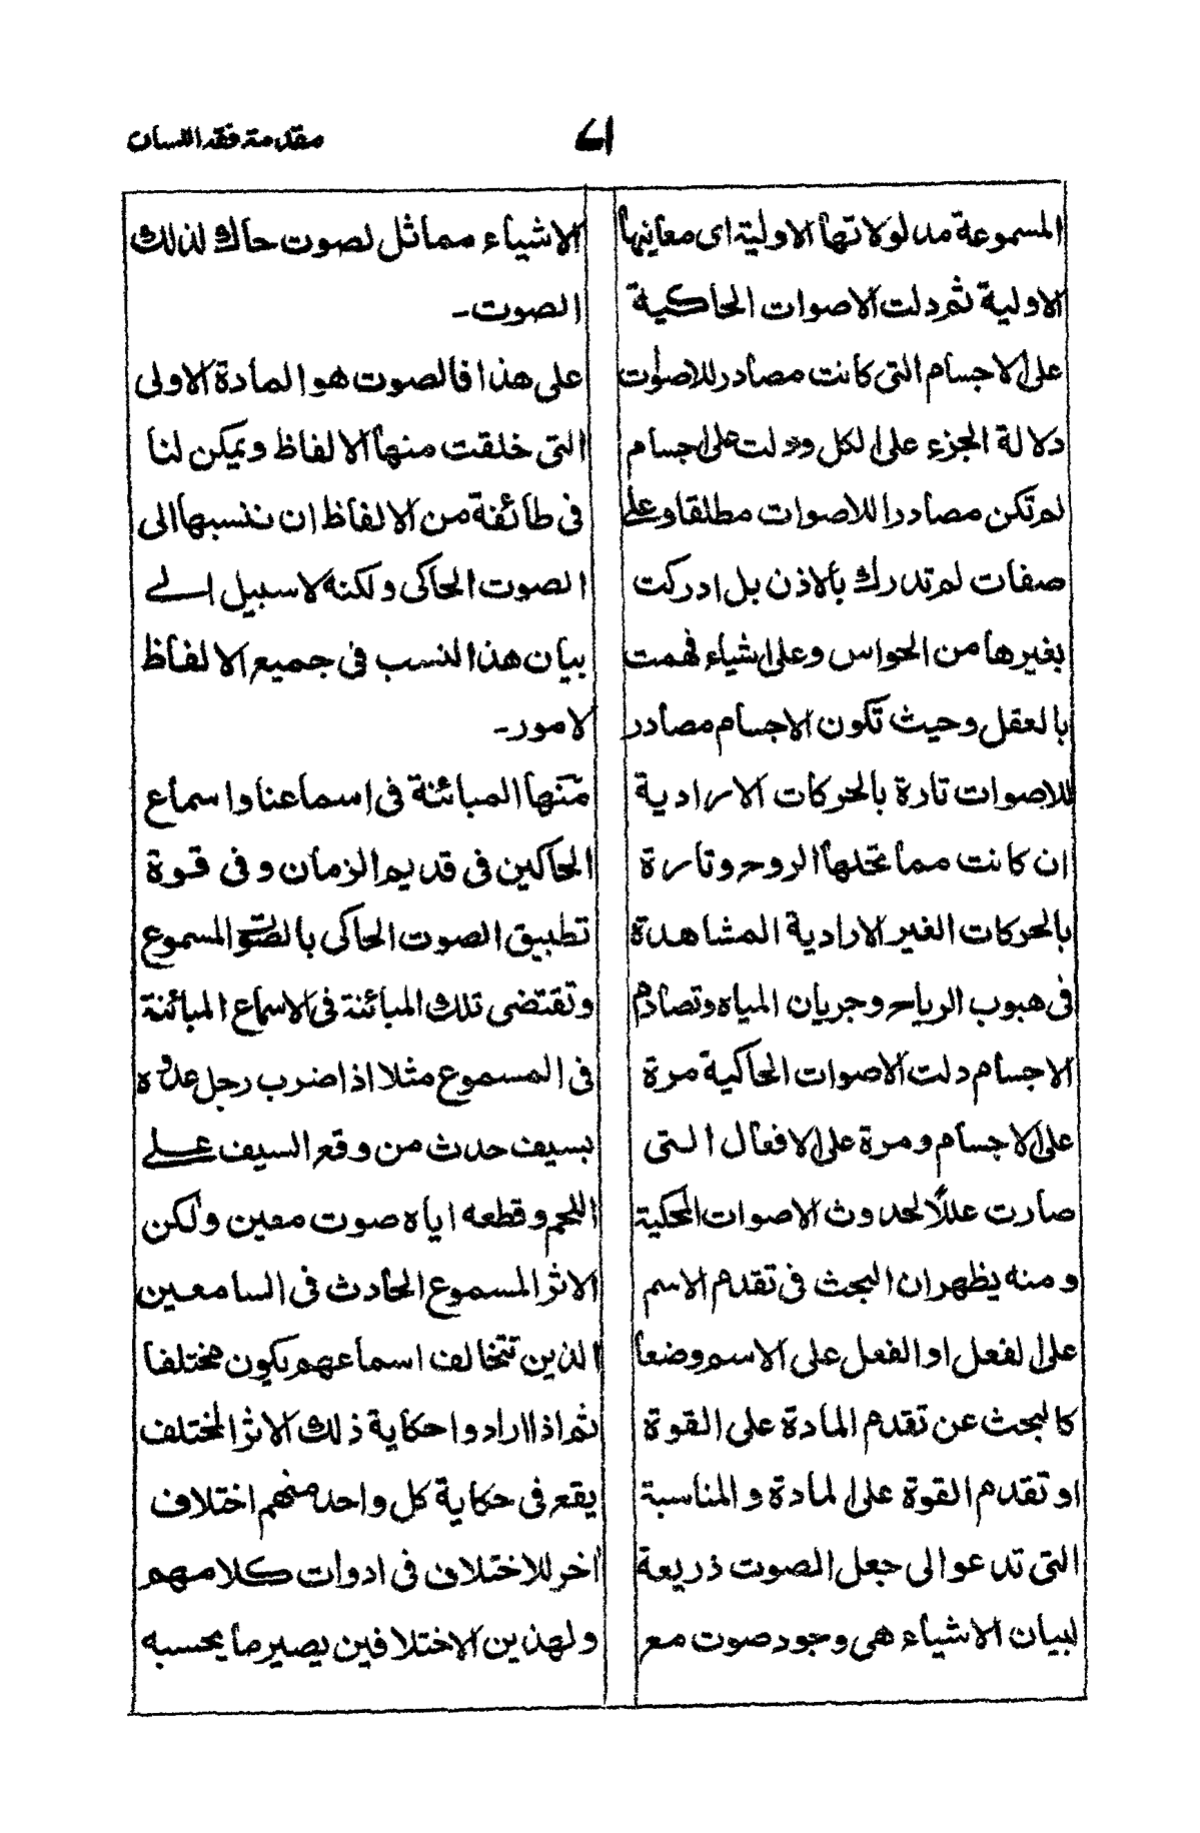 مقدمة فقه اللسان
المسموعة مدلولاتها الاولية اى معانيها
الاولية ثم دلت الاصوات الحاكية
على الاجسام التى كانت مصادر للاصوات
دلالة الجزء على الكل ودلت على اجسام
لم تكن مصادرا للاصوات مطلقا وعلى
صفات لم تدرك بألاذن بل ادركت
بغيرها من الحواس وعلى اشياء فهمت
بالعقل وحيث تكون الاجسام مصادر
للاصوات تارة بالحركات الارادية
ان كانت مما تحلها الروح وتارة
بالحركات الغير الارادية المشاهدة
فى هبوب الرياح وجريان المياه وتصادم
الاجسام دلت الاصوات الحاكية مرة
على الاجسام ومرة على الافعال التى
صارت عللًا لحدوث الاصوات المحكية
ومنه يظهر ان البحث فى تقدم الاسم
على الفعل او الفعل على الاسم وضعا
كالبحث عن تقدم المادة على القوة
او تقدم القوة على المادة والمناسبة
التى تدعو الى جعل الصوت ذريعة
لبيان الاشياء هى وجود صوت مع
الاشياء مماثل لصوت حاك لذلك
الصوت۔
على هذا فالصوت هو المادة الاولى
التى خلقت منها الالفاظ ويمكن لنا
فى طائفة من الالفاظ ان ننسبها الى
الصوت الحاكى ولكنه لا سبيل الے
بيان هذا النسب فى جميع الالفاظ
لامور۔
منها المبائنة فى اسماعنا واسماع
الحاكين فى قديم الزمان وفى قوة
تطبيق الصوت الحاكى بالصوت المسموع
وتقتضى تلك المبائنة فى الاسماع المبائنة
فى المسموع مثلا اذا ضرب رجل عدوه
بسيف حدث من وقع السيف علے
اللحم وقطعه اياه صوت معين ولكن
الاثر المسموع الحادث فى السامعين
الذين تتخالف اسماعهم يكون مختلفا
ثم اذا ارادوا حكاية ذلك الاثر المختلف
يقع فى حكاية كل واحد منهم اختلاف
اخر للاختلاف فى ادوات كلامهم
ولهذين الاختلافين يصير ما يحسبه